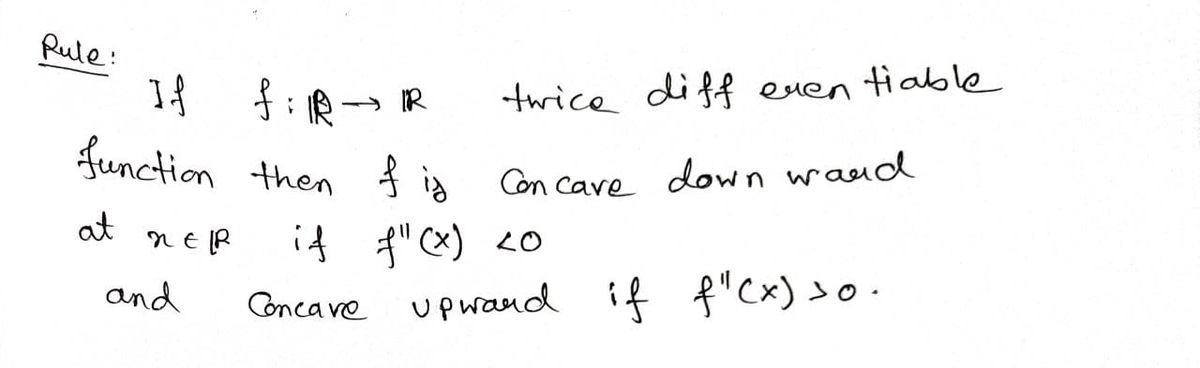 Rule:
If f : ℝ → ℝ twice differentiable
function then f is Concave downward
at x ∈ ℝ if f''(x) <0
and Concave upward if f''(x) >0.